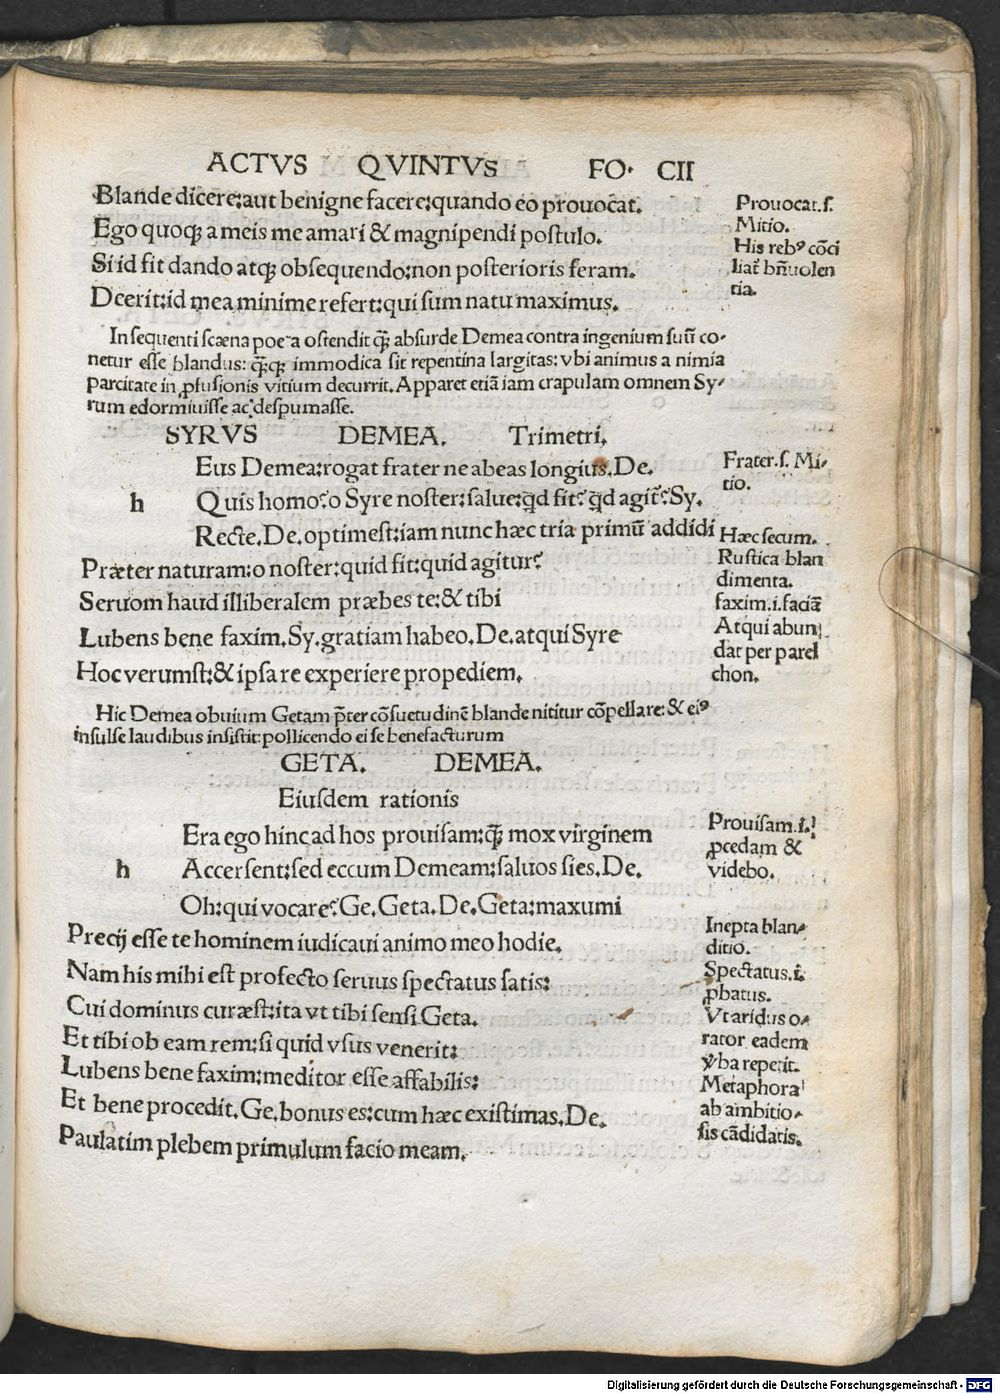 ACTVS QVINTVS FO. CII
Blande dicere:aut benigne facere:quando eo prouocat.
Ego quoqꝫ a meis me amari & magnipendi postulo.
Si id fit dando atqꝫ obsequendo:non posterioris feram.
Deerit:id mea minime refert:qui sum natu maximus.
Prouocat.s.
Mitio.
His rebꝰ cōci
liat̄ bn̄uolen
tia.
In sequenti scæna poeta ostendit qꝫ̄ absurde Demea contra ingenium suū co-
netur esse blandus: qꝫ̄qꝫ immodica sit repentina largitas: vbi animus a nimia
parcitate in ꝓfusionis vitium decurrit. Apparet etiā iam crapulam omnem Sy-
rum edormiuisse ac despumasse.
SYRVS DEMEA. Trimetri.
Eus Demea:rogat frater ne abeas longius.De.
h Quis homo?o Syre noster:salue:qd fit? qd agit̄?Sy.
Recte.De.optimest:iam nunc hæc tria primū addidi
Præter naturam:o noster:quid fit:quid agitur?
Seruom haud illiberalem præbes te:& tibi
Lubens bene faxim.Sy.gratiam habeo.De.atqui Syre
Hoc verumst:& ipsa re experiere propediem.
Frater.s. Mi-
tio.
Hæc secum.
Rustica blan
dimenta.
faxim.i.faciā
Atqui abun
dat per parel
chon.
Hic Demea obuium Getam p̄ter cōsuetudinē blande nititur cōpellare: & eiꝰ
insulse laudibus insistit: pollicendo ei se benefacturum
GETA. DEMEA.
Eiusdem rationis
Era ego hinc ad hos prouisam:qꝫ̄ mox virginem
h Accersent:sed eccum Demeam:saluos sies.De.
Oh:qui vocare?Ge.Geta.De.Geta:maxumi
Precij esse te hominem iudicaui animo meo hodie.
Nam his mihi est profecto seruus spectatus satis:
Cui dominus curæst:ita vt tibi sensi Geta.
Et tibi ob eam rem:si quid vsus venerit:
Lubens bene faxim:meditor esse affabilis:
Et bene procedit.Ge.bonus es:cum hæc existimas.De.
Paulatim plebem primulum facio meam.
Prouisam.i.
ꝓcedam &
videbo.
Inepta blan-
ditio.
Spectatus.i.
ꝓbatus.
Vt aridus o-
rator eadem
v̄ba repetit.
Metaphora
ab ambitio-
sis cādidatis.
Digitalisierung gefördert durch die Deutsche Forschungsgemeinschaft - DFG